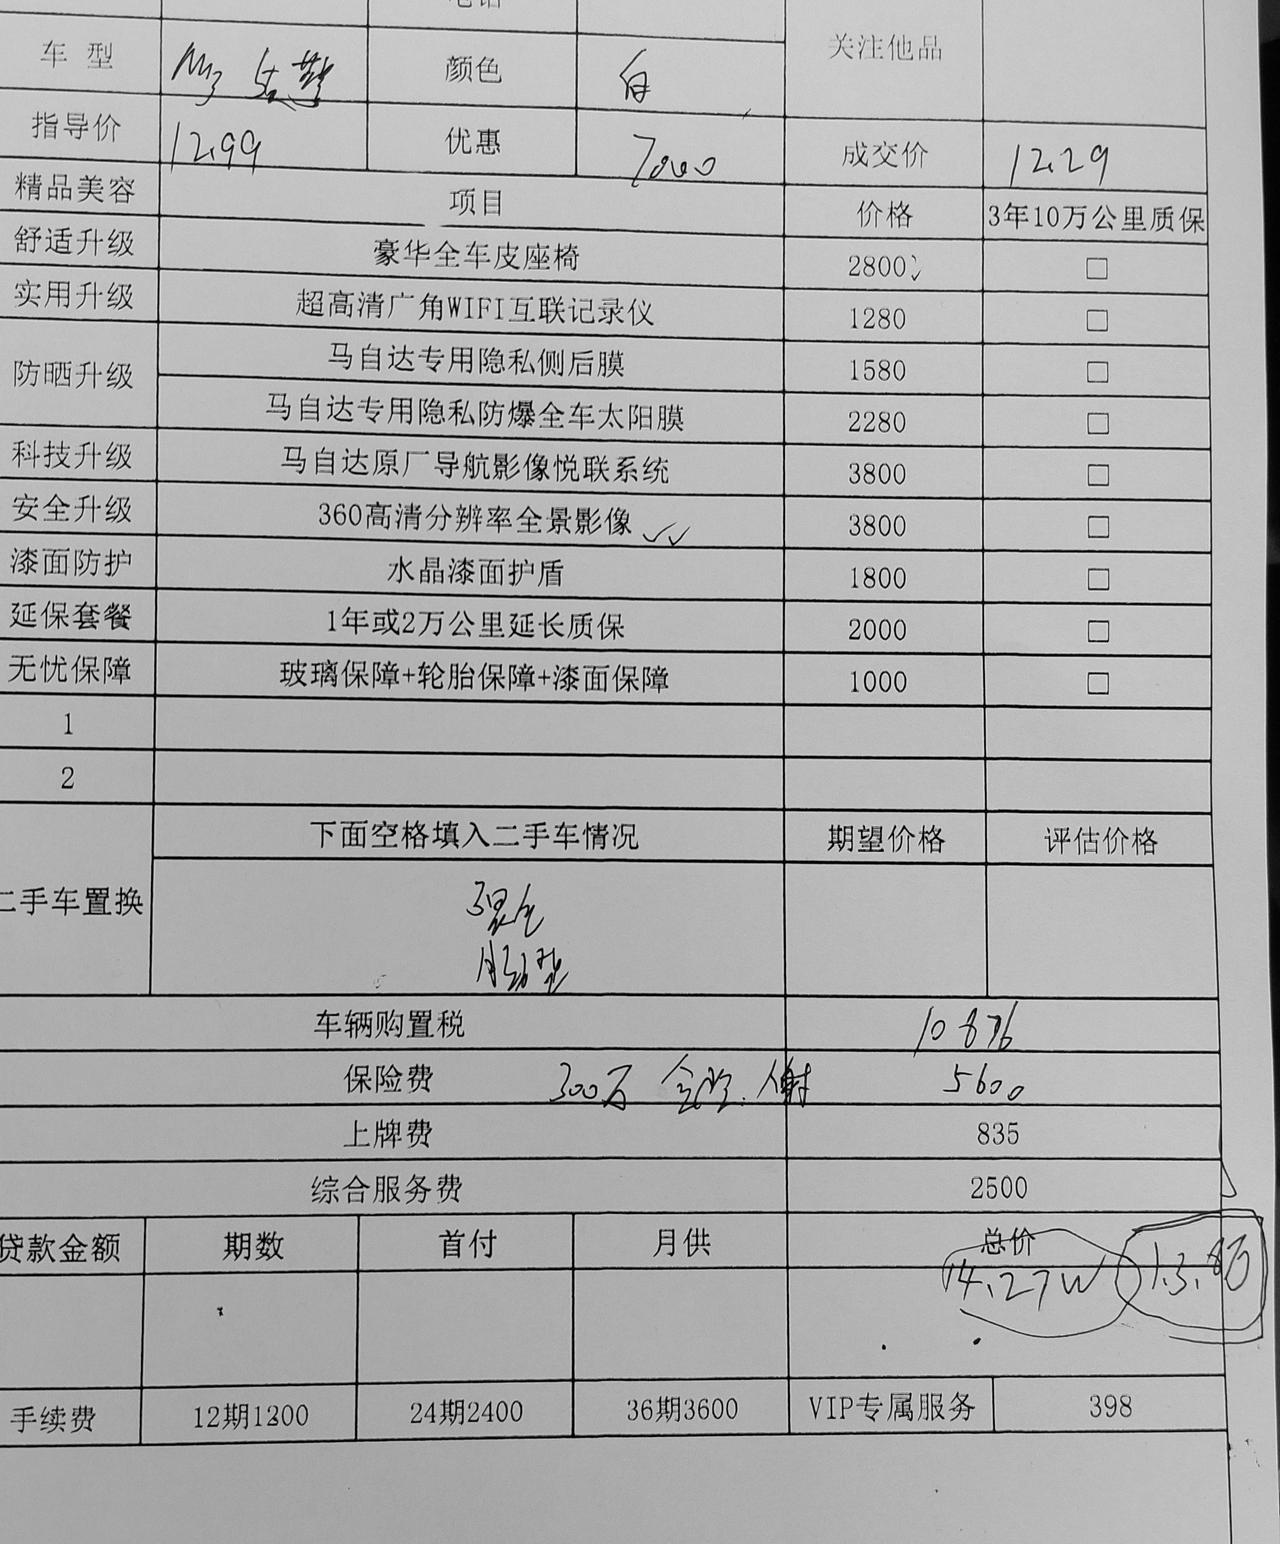 电话
车 型 颜色 白 关注他品
指导价 12.99 优惠 7000 成交价 12.29
精品美容 项目 价格 3年10万公里质保
舒适升级 豪华全车皮座椅 2800 □
实用升级 超高清广角WIFI互联记录仪 1280 □
防晒升级 马自达专用隐私侧后膜 1580 □
马自达专用隐私防爆全车太阳膜 2280 □
科技升级 马自达原厂导航影像悦联系统 3800 □
安全升级 360高清分辨率全景影像 ✓✓ 3800 □
漆面防护 水晶漆面护盾 1800 □
延保套餐 1年或2万公里延长质保 2000 □
无忧保障 玻璃保障+轮胎保障+漆面保障 1000 □
1
2
下面空格填入二手车情况 期望价格 评估价格
二手车置换
车辆购置税 10876
保险费 300万 5600
上牌费 835
综合服务费 2500
贷款金额 期数 首付 月供 总价
14.27W 13.8万
手续费 12期1200 24期2400 36期3600 VIP专属服务 398